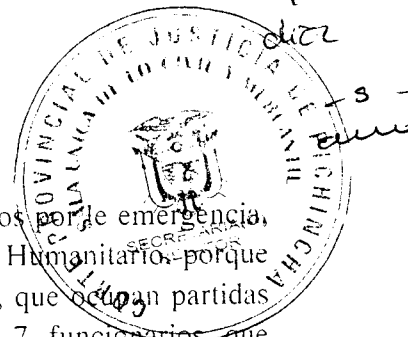 diez
- s -
CORTE PROVINCIAL DE JUSTICIA DE PICHINCHA
SALA UNICA DE LO CIVIL Y MERCANTIL
SECRETARIA
os por le emergencia,
Humanitario, porque
, que ocupan partidas
7 funcionarios que